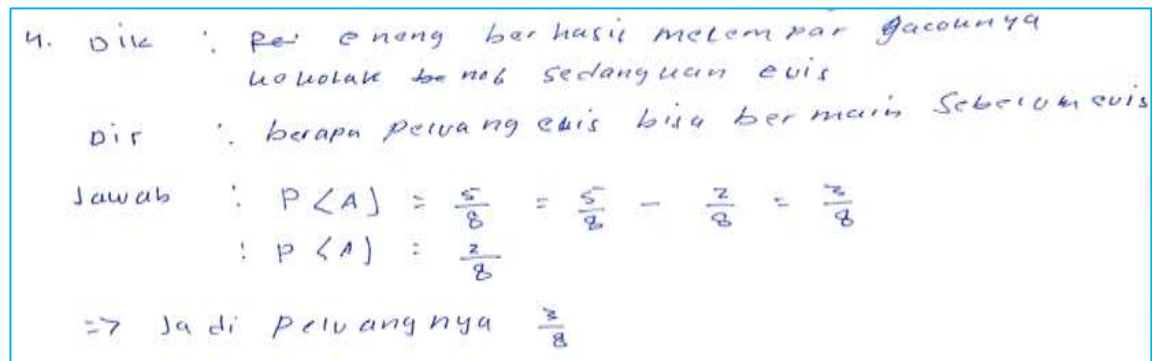 4. Dik : eneng berhasil melempar gacounnya
kekotak no 6 sedangkan evis
Dit : berapa peluang evis bisa bermain Sebelum evis
Jawab : P(A) = 5/8 = 5/8 - 2/8 = 3/8
: P(A) = 2/8
=> Jadi peluangnya 3/8